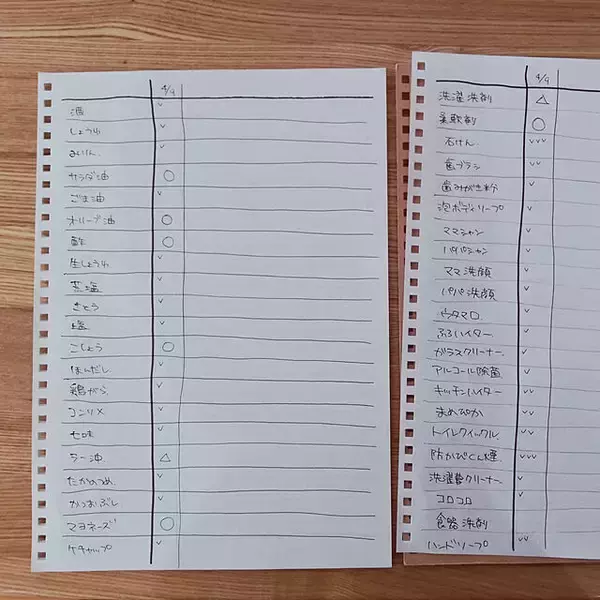 4/9
酒 ✓
しょうゆ ✓
みりん ✓
サラダ油 ○
ごま油 ✓
オリーブ油 ○
酢 ○
生しょうゆ ✓
岩塩 ✓
さとう ✓
塩 ✓
こしょう ○
ほんだし ✓
鶏がら ✓
コンソメ ✓
七味 ✓
ラー油 △
たかのつめ ✓
かつおぶし ✓
マヨネーズ ○
ケチャップ ✓
4/9
洗濯洗剤 △
柔軟剤 ○
石けん ✓✓✓
歯ブラシ ✓✓
歯みがき粉 ✓
泡ボディソープ ✓
ママシャン ✓
パパシャン ✓
ママ洗顔 ✓
パパ洗顔 ✓
ウタマロ ✓
ふろハイター ✓
ガラスクリーナー ✓
アルコール除菌 ✓
キッチンハイター ✓✓
まめぴか ✓✓
トイレクイックル ✓✓
防カビくん煙 ✓✓✓
洗濯槽クリーナー ✓
コロコロ ✓
食器洗剤
ハンドソープ ✓✓